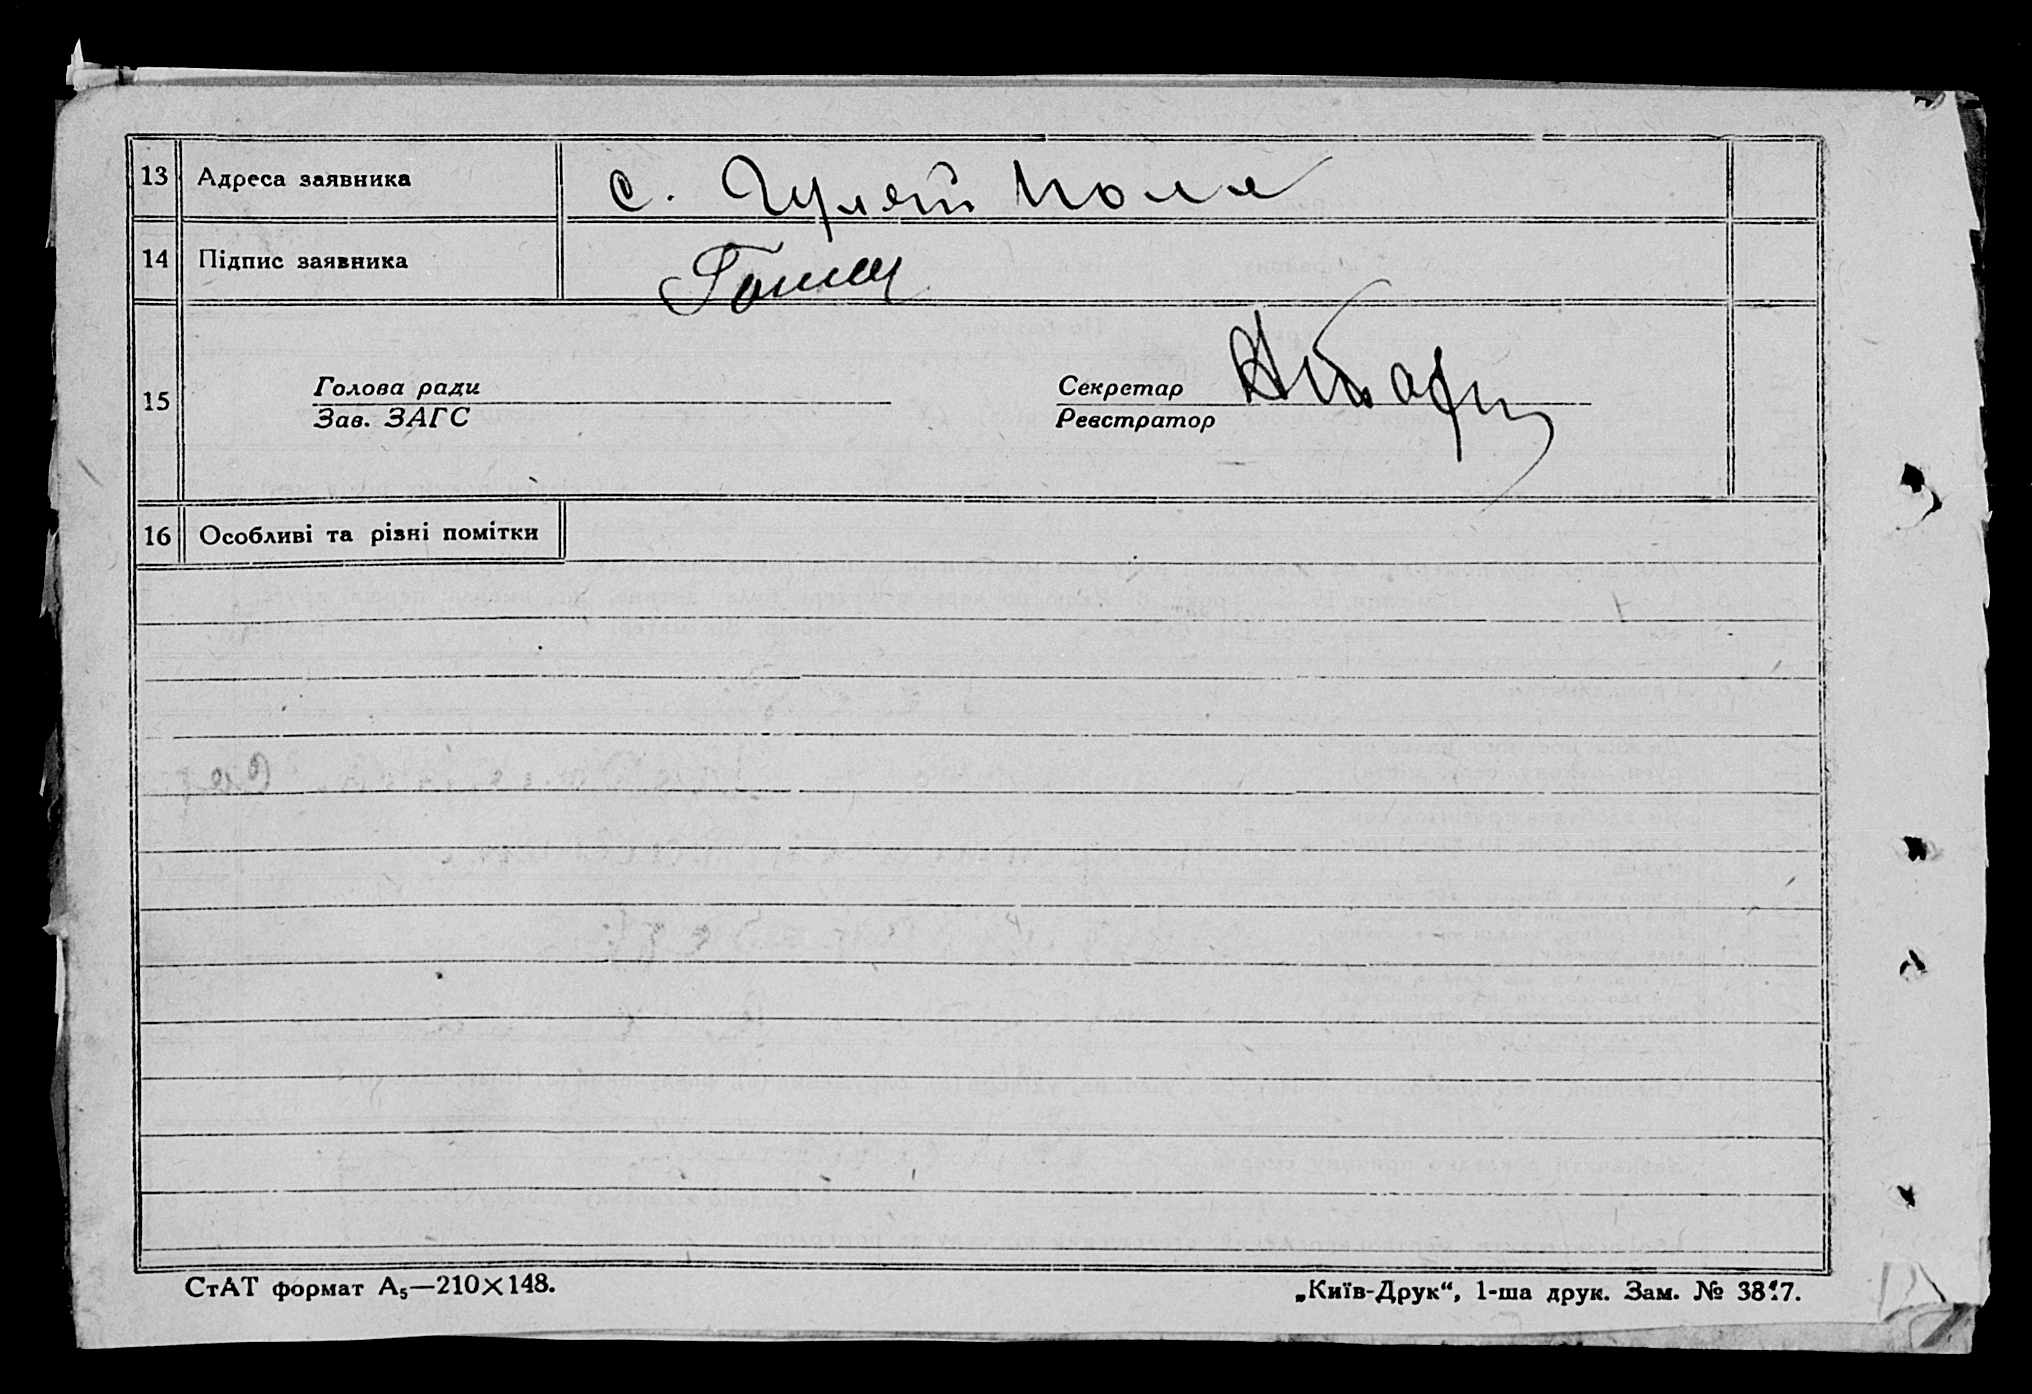 13 Адреса заявника с. Гуляй Поля
14 Підпис заявника
15 Голова ради Секретар
Зав. ЗАГС Реєстратор
16 Особливі та різні помітки
СтАТ формат А5—210×148. „Київ-Друк“, 1-ша друк. Зам. №